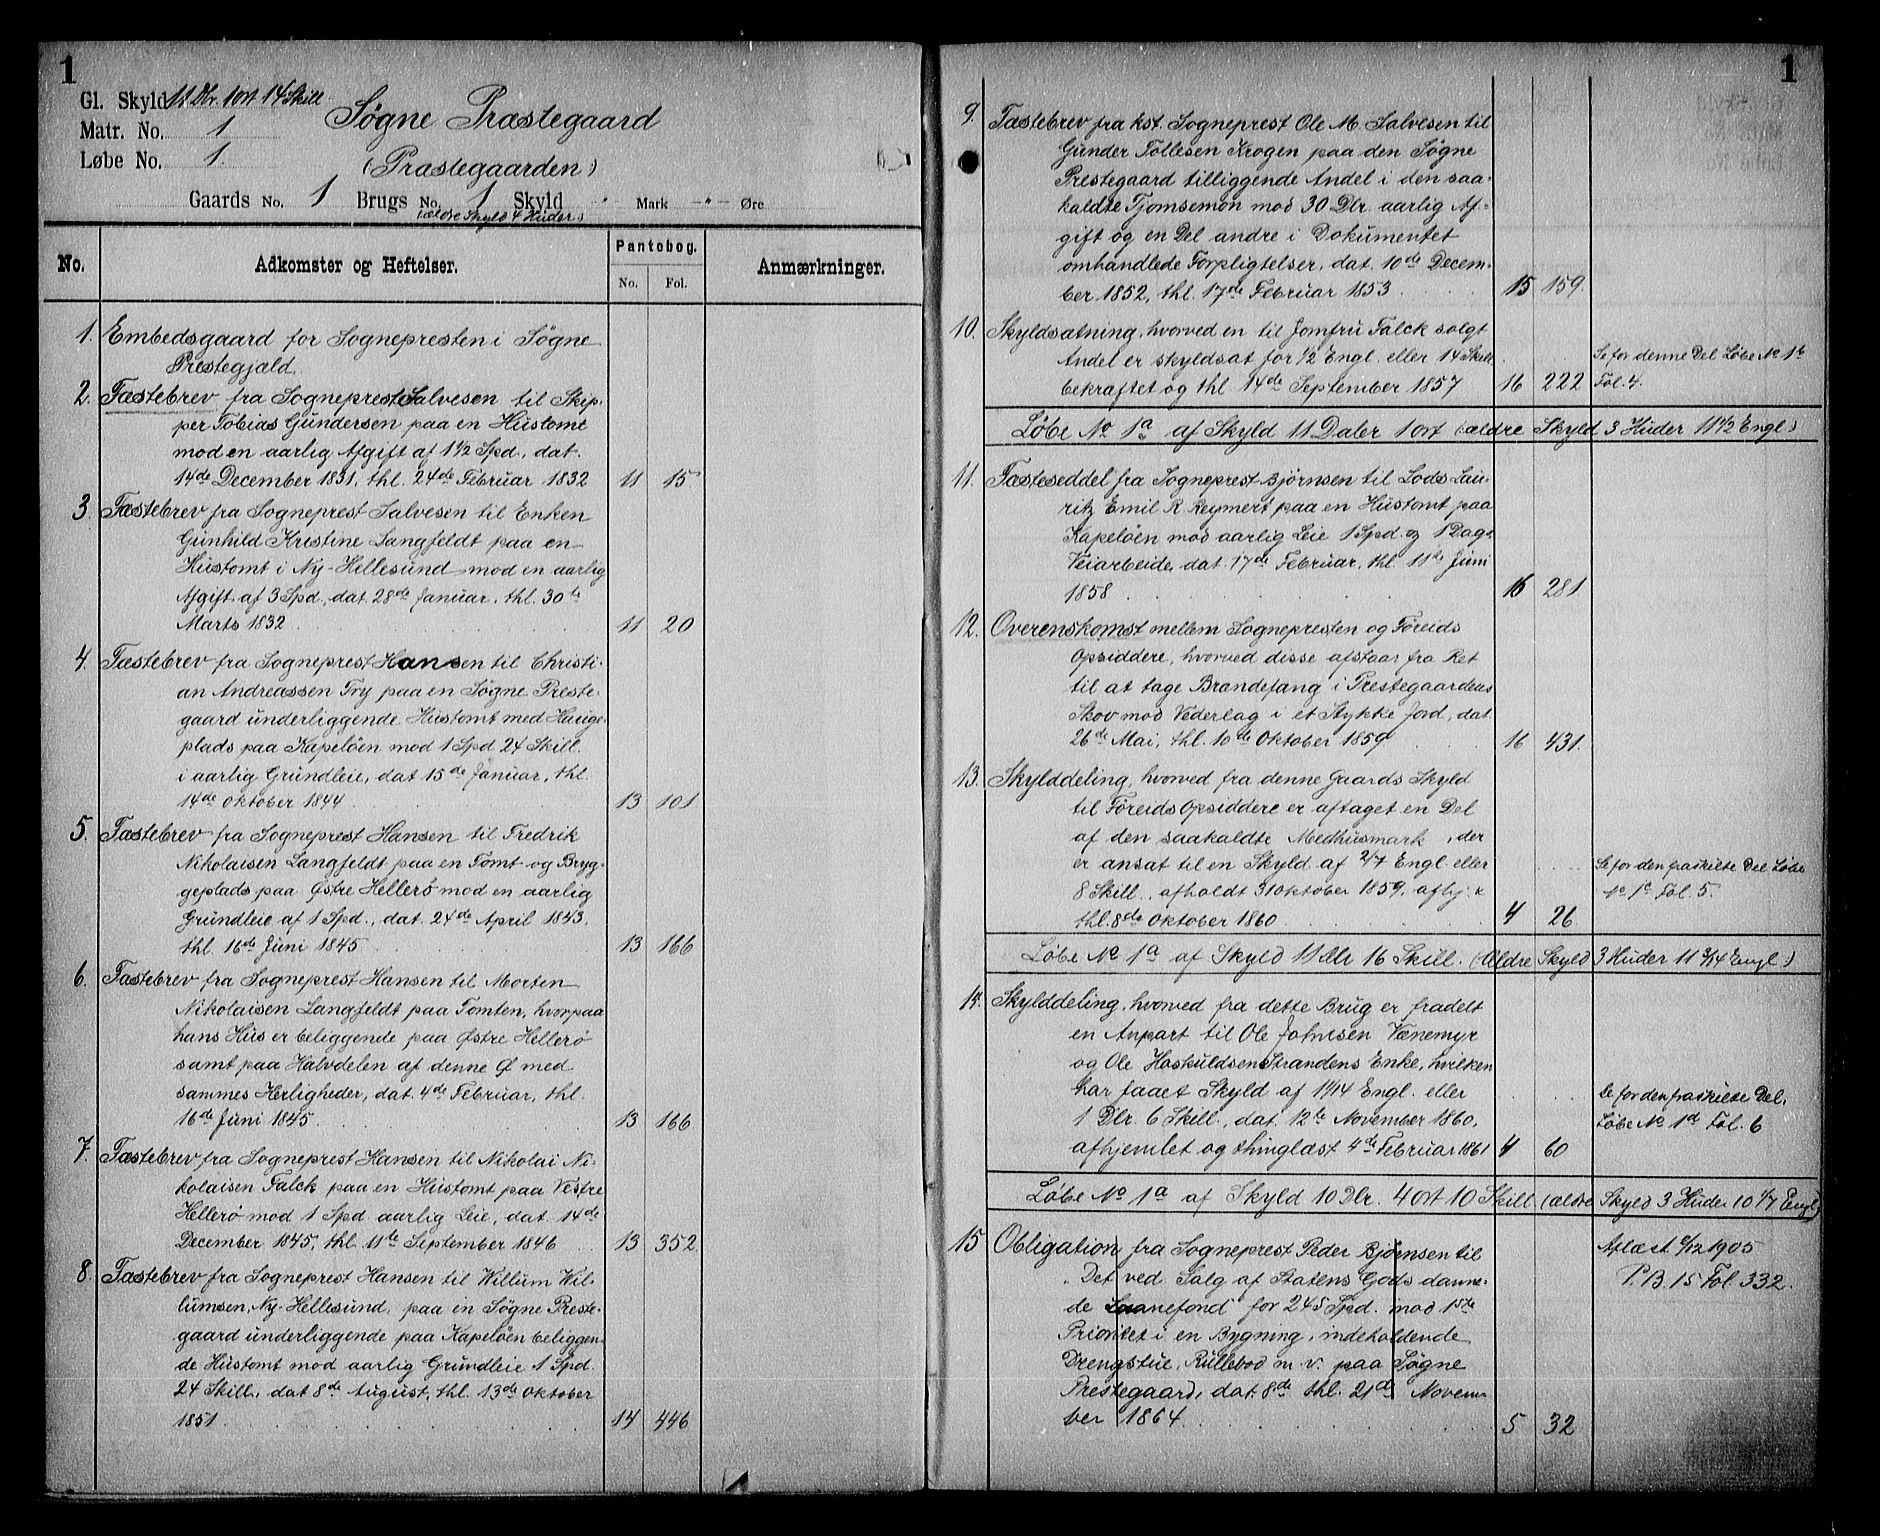 1
Gl. Skyld 11 Dlr. 1 ort 14 Skill.
Matr. No. 1
Løbe No. 1.
Søgne Præstegaard
(Præstegaarden)
Gaards No. 1 Brugs No. 1 Skyld " Mark " Øre
(ældre Skyld 4 Huder.)
No. Adkomster og Heftelser. Pantebog. Anmærkninger.
No. Fol.
1. Embedsgaard for Sognepresten i Søgne
Prestegjæld.
2. Fæstebrev fra Sogneprest Salvesen til Skip-
per Tobias Gundersen paa en Hustomt
mod en aarlig Afgift af 1 1/2 Spd., dat.
14de December 1831, thl. 24de Februar 1832 11 15
3. Fæstebrev fra Sogneprest Salvesen til Enken
Gunhild Kristine Langfeldt paa en
Hustomt i Ny-Hellesund mod en aarlig
Afgift af 3 Spd, dat. 28de Januar, thl. 30te
Marts 1832 11 20
4. Fæstebrev fra Sogneprest Hansen til Christi-
an Andreassen Try paa en Søgne Preste-
gaard underliggende Hustomt med Hauge-
plads paa Kapeløen mod 1 Spd 24 Skill.
i aarlig Grundleie, dat 15de Januar, thl.
14de Oktober 1844 13 101
5. Fæstebrev fra Sogneprest Hansen til Fredrik
Nikolaisen Langfeldt paa en Tomt og Bryg-
geplads paa Østre Hellerø mod en aarlig
Grundleie af 1 Spd., dat. 24de April 1843,
thl. 16de Juni 1845 13 166
6. Fæstebrev fra Sogneprest Hansen til Morten
Nikolaisen Langfeldt paa Tomten, hvorpaa
hans Hus er beliggende paa Østre Hellerø
samt paa Halvdelen af denne Ø med
sammes Herligheder, dat. 4de Februar, thl.
16de Juni 1845. 13 166
7. Fæstebrev fra Sogneprest Hansen til Nikolai Ni-
kolaisen Falck paa en Hustomt paa Vestre
Hellerø mod 1 Spd. aarlig Leie, dat. 14de
December 1845, thl. 11te September 1846 13 352
8. Fæstebrev fra Sogneprest Hansen til Willum Wil-
lumsen, Ny-Hellesund, paa en Søgne Preste-
gaard underliggende paa Kapeløen beliggen-
de Hustomt mod aarlig Grundleie 1 Spd.
24 Skill., dat 8de August, thl. 13de Oktober
1851 14 446
1
9. Fæstebrev fra kst. Sogneprest Ole M. Salvesen til
Gunder Tollesen Krogen paa den Søgne
Prestegaard tilliggende Andel i den saa-
kaldte Tjomsemon mod 30 Dlr. aarlig Af-
gift og en Del andre i Dokumentet
omhandlede Forpligtelser, dat. 10de Decem-
ber 1852, thl. 17de Februar 1853 15 159
10. Skyldsætning, hvorved en til Jomfru Falck solgt
Andel er skyldsat for 1/2 Engl. eller 14 Skill. Se for denne Del Løbe No 1b
bekræftet og thl 14de September 1857 16 222 Fol. 4.
Løbe No 1a af Skyld 11 Daler 1 ort (ældre Skyld 3 Huder 11 1/2 Engl.)
11. Fæsteseddel fra Sogneprest Bjørnsen til Lods Lau-
ritz Emil R Reymert paa en Hustomt paa
Kapeløen mod aarlig Leie 1 Spd. og 1 Dags
Veiarbeide, dat. 17de Februar, thl. 11te Juni
1858 16 281
12. Overenskomst mellem Sognepresten og Føreids
Opsiddere, hvorved disse afstaar fra Ret
til at tage Brændefang i Prestegaardens
Skov mod Vederlag i et Stykke Jord, dat
26de Mai, thl. 10de Oktober 1859 16 431
13. Skylddeling, hvorved fra denne Gaards Skyld
til Føreids Opsiddere er aftaget en Del
af den saakaldte Medhusmark, der
er ansat til en Skyld af 2/7 Engl. eller Se for den fraskilte Del Løbe
8 Skill., afholdt 31 Oktober 1859, afhj. & No 1c Fol. 5.
thl. 8de Oktober 1860 4 26
Løbe No 1a af Skyld 11 Dlr 16 Skill. (Ældre Skyld 3 Huder 11 3/14 Engl.)
14. Skylddeling, hvorved fra dette Brug er fradelt
en Anpart til Ole Johnsen Vænemyr
og Ole Haskuldsen Strandens Enke, hvilken
har faaet Skyld af 1 1/14 Engl. eller Se for den fraskilte Del,
1 Dlr. 6 Skill., dat. 12te November 1860, Løbe No 1d Fol. 6
afhjemlet og thinglæst 4de Februar 1861 4 60
Løbe No 1a af Skyld 10 Dlr. 4 ort 10 Skill (ældre Skyld 3 Huder 10 1/7 Engl.)
15 Obligation fra Sogneprest Peder Bjørnsen til Aflæst 6/12 1905
"Det ved Salg af Statens Gods danne- P.B 15 Fol 332.
de Laanefond" for 245 Spd. mod 1ste
Prioritet i en Bygning, indeholdende
Drengstue, Rullebod m. v. paa Søgne
Prestegaard, dat. 8de thl. 21de Novem-
ber 1864 5 32